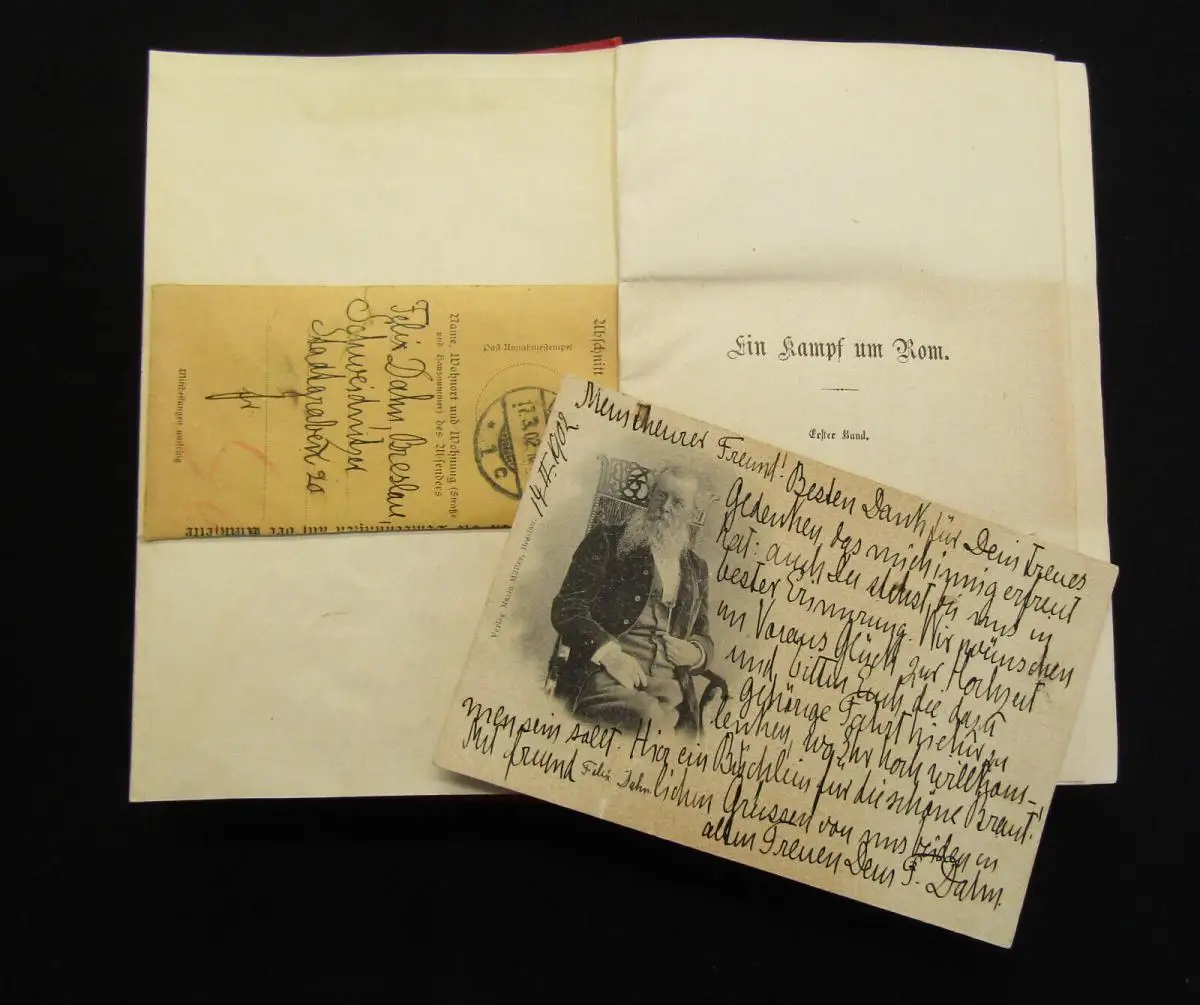 Ein Kampf um Rom.
Erster Band.
Abschnitt
Post-Annahmestempel
17.3.02.
1 c
Name, Wohnort und Wohnung (Straße
und Hausnummer) des Absenders
Felix Dahn, Breslau,
Schweidnitzer
Stadtgraben 20
fr
Mitteilungen umseitig
auf der
14 II. 1902
Verlag Mario Müller, Breslau.
Freund! Besten Dank für Dein treues
Gedenken, das mich innig erfreut
hat: auch Du stehst bei uns in
bester Erinnerung. Wir wünschen
im Voraus Glück zur Hochzeit
und bitten Euch die dazu
gehörige Fahrt hieher zu
lenken, wo Ihr hoch willkom-
men sein sollt. Hier ein Büchlein für die schöne Braut!
Mit freundlichen Grüssen von uns beiden in
Felix Dahn
alten Treuen Dein F. Dahn.